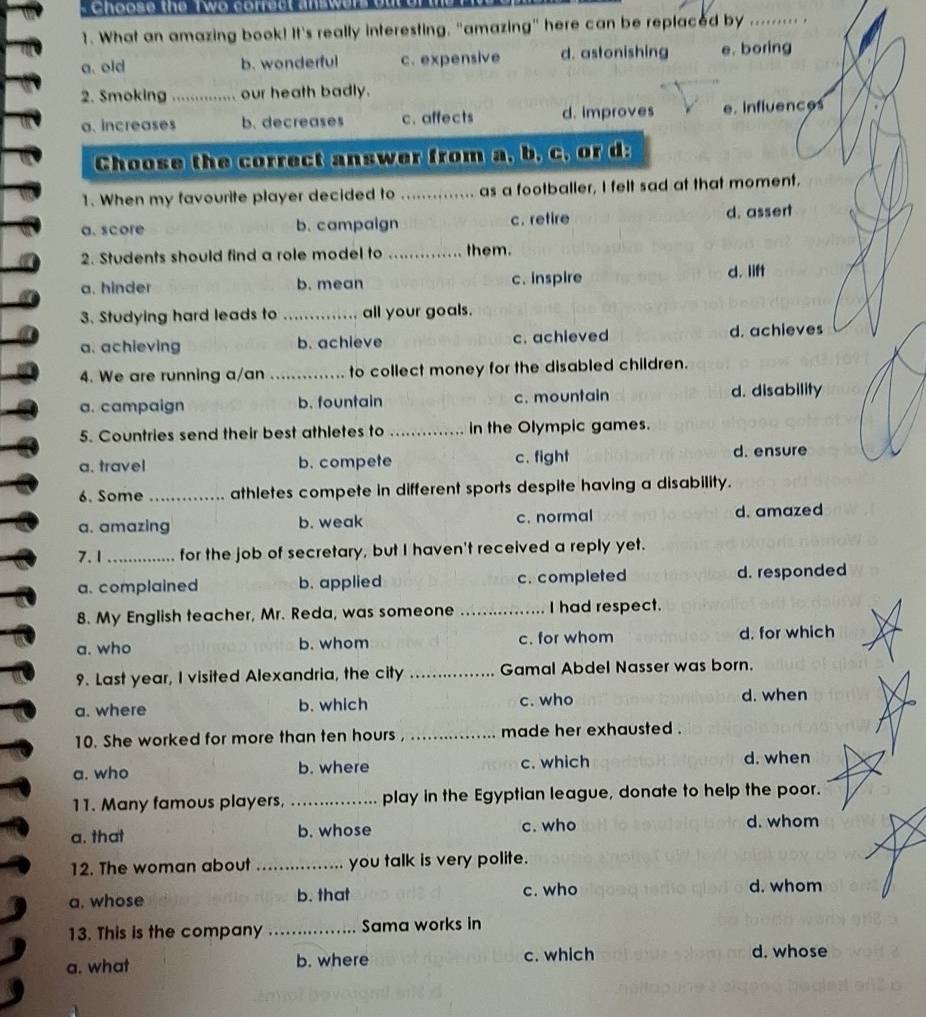 Choose the Two correct answers out of the Five
1. What an amazing book! It's really interesting. "amazing" here can be replaced by ......... .
a. old b. wonderful c. expensive d. astonishing e. boring
2. Smoking .............. our heath badly.
a. increases b. decreases c. affects d. improves e. influences
Choose the correct answer from a, b, c, or d:
1. When my favourite player decided to .............. as a footballer, I felt sad at that moment.
a. score b. campaign c. retire d. assert
2. Students should find a role model to .............. them.
a. hinder b. mean c. inspire d. lift
3. Studying hard leads to .............. all your goals.
a. achieving b. achieve c. achieved d. achieves
4. We are running a/an .............. to collect money for the disabled children.
a. campaign b. fountain c. mountain d. disability
5. Countries send their best athletes to .............. in the Olympic games.
a. travel b. compete c. fight d. ensure
6. Some .............. athletes compete in different sports despite having a disability.
a. amazing b. weak c. normal d. amazed
7. I .............. for the job of secretary, but I haven't received a reply yet.
a. complained b. applied c. completed d. responded
8. My English teacher, Mr. Reda, was someone ................ I had respect.
a. who b. whom c. for whom d. for which
9. Last year, I visited Alexandria, the city ................ Gamal Abdel Nasser was born.
a. where b. which c. who d. when
10. She worked for more than ten hours , ................ made her exhausted .
a. who b. where c. which d. when
11. Many famous players, ................ play in the Egyptian league, donate to help the poor.
a. that b. whose c. who d. whom
12. The woman about ................ you talk is very polite.
a. whose b. that c. who d. whom
13. This is the company ................ Sama works in
a. what b. where c. which d. whose